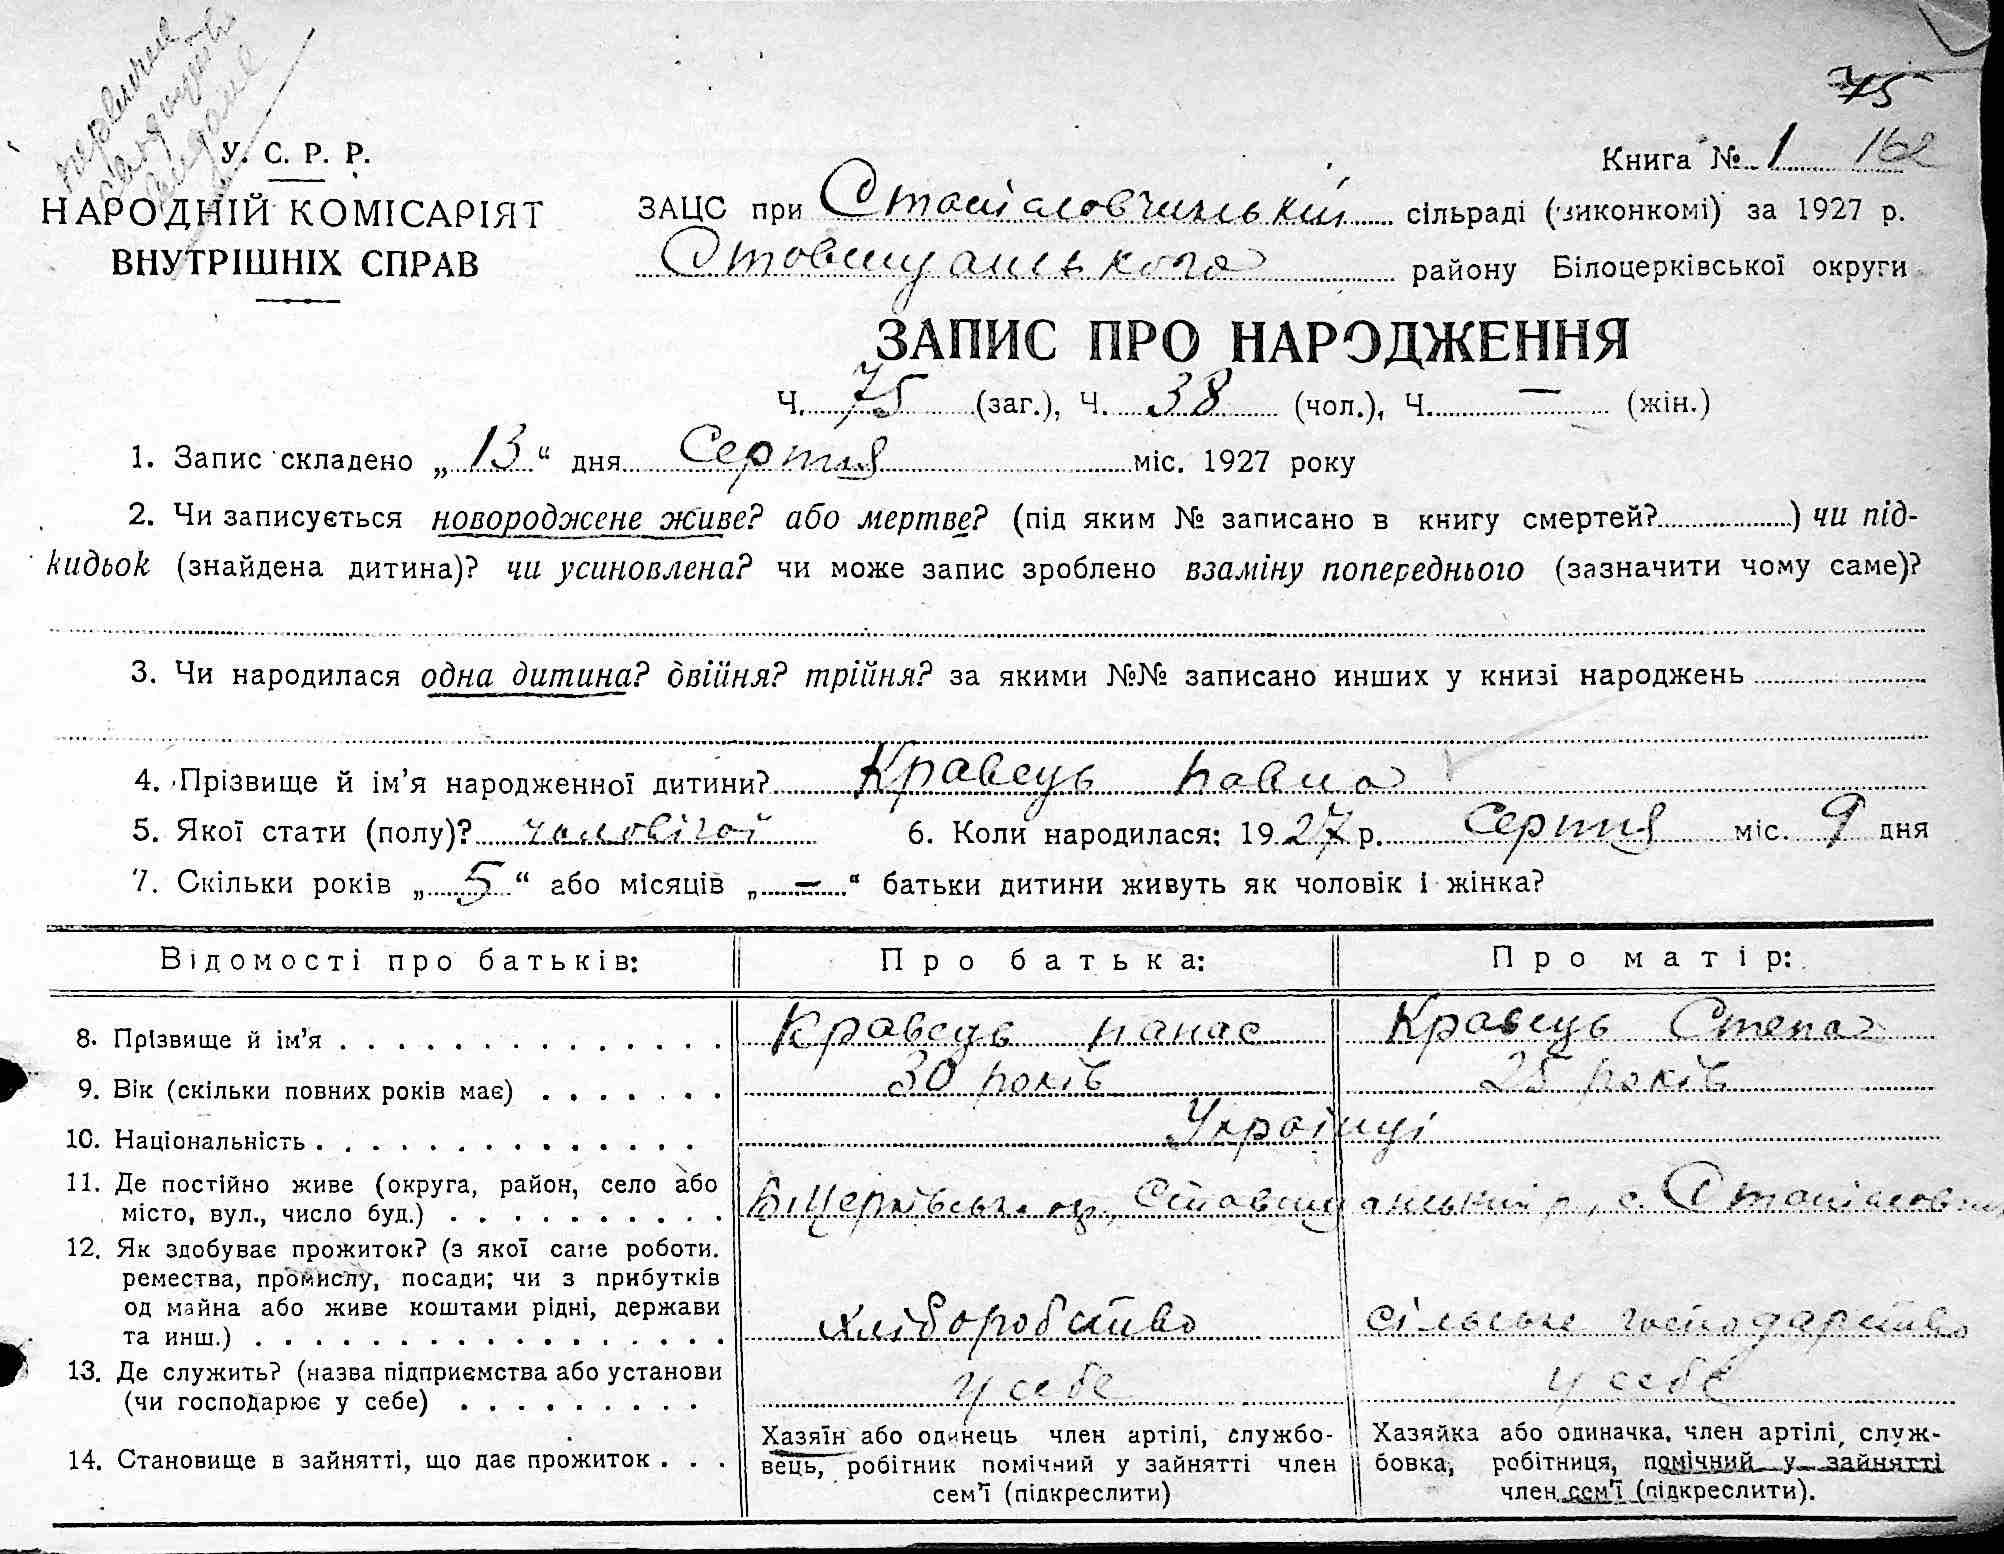 75
У. С. Р. Р.
НАРОДНІЙ КОМІСАРІЯТ
ВНУТРІШНІХ СПРАВ
Книга № 1 162
ЗАЦС при Станіславчинській сільраді (виконкомі) за 1927 р.
Ставищанського району Білоцерківської округи
ЗАПИС ПРО НАРОДЖЕННЯ
Ч. 75 (заг.), Ч. 38 (чол.), Ч. — (жін.)
1. Запис складено „13“ дня Серпня міс. 1927 року
2. Чи записується новороджене живе? або мертве? (під яким № записано в книгу смертей?) чи під-
кидьок (знайдена дитина)? чи усиновлена? чи може запис зроблено взаміну попереднього (зазначити чому саме)?
3. Чи народилася одна дитина? двійня? трійня? за якими №№ записано инших у книзі народжень
4. Прізвище й ім’я народженної дитини? Кравець Павло
5. Якої стати (полу)? чоловічої 6. Коли народилася: 1927 р. Серпня міс. 9 дня
7. Скільки років „5“ або місяців „—“ батьки дитини живуть як чоловік і жінка?
Відомості про батьків: Про батька: Про матір:
8. Прізвище й ім’я Кравець Панас Кравець Степа
9. Вік (скільки повних років має) 30 років 25 років
10. Національність Українці
11. Де постійно живе (округа, район, село або
місто, вул., число буд.) Б.Церківськ. ок, Ставищанський р, с. Станіслав
12. Як здобуває прожиток? (з якої саме роботи.
ремества, промислу, посади; чи з прибутків
од майна або живе коштами рідні, держави
та инш.) хліборобство сільське господарство
13. Де служить? (назва підприємства або установи
(чи господарює у себе) у себе у себе
14. Становище в зайнятті, що дає прожиток
Хазяїн або одинець член артілі, службо-
вець, робітник помічний у зайнятті член
сем’ї (підкреслити)
Хазяйка або одиначка, член артілі, служ-
бовка, робітниця, помічний у зайнятті
член сем’ї (підкреслити).